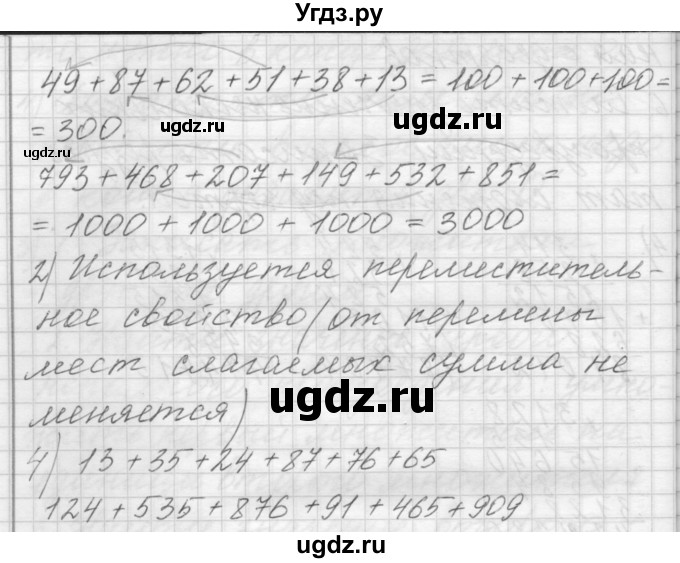 Угдз.ру
49 + 87 + 62 + 51 + 38 + 13 = 100 + 100 + 100 =
= 300.
ugdz.ru
ugdz.ru
ugdz.ru
793 + 468 + 207 + 149 + 532 + 851 =
= 1000 + 1000 + 1000 = 3000
2) Используется переместитель-
ное свойство (от перемены
мест слагаемых сумма не
ugdz.ru
меняется)
4) 13 + 35 + 24 + 87 + 76 + 65
124 + 535 + 876 + 91 + 465 + 909
ugdz.ru